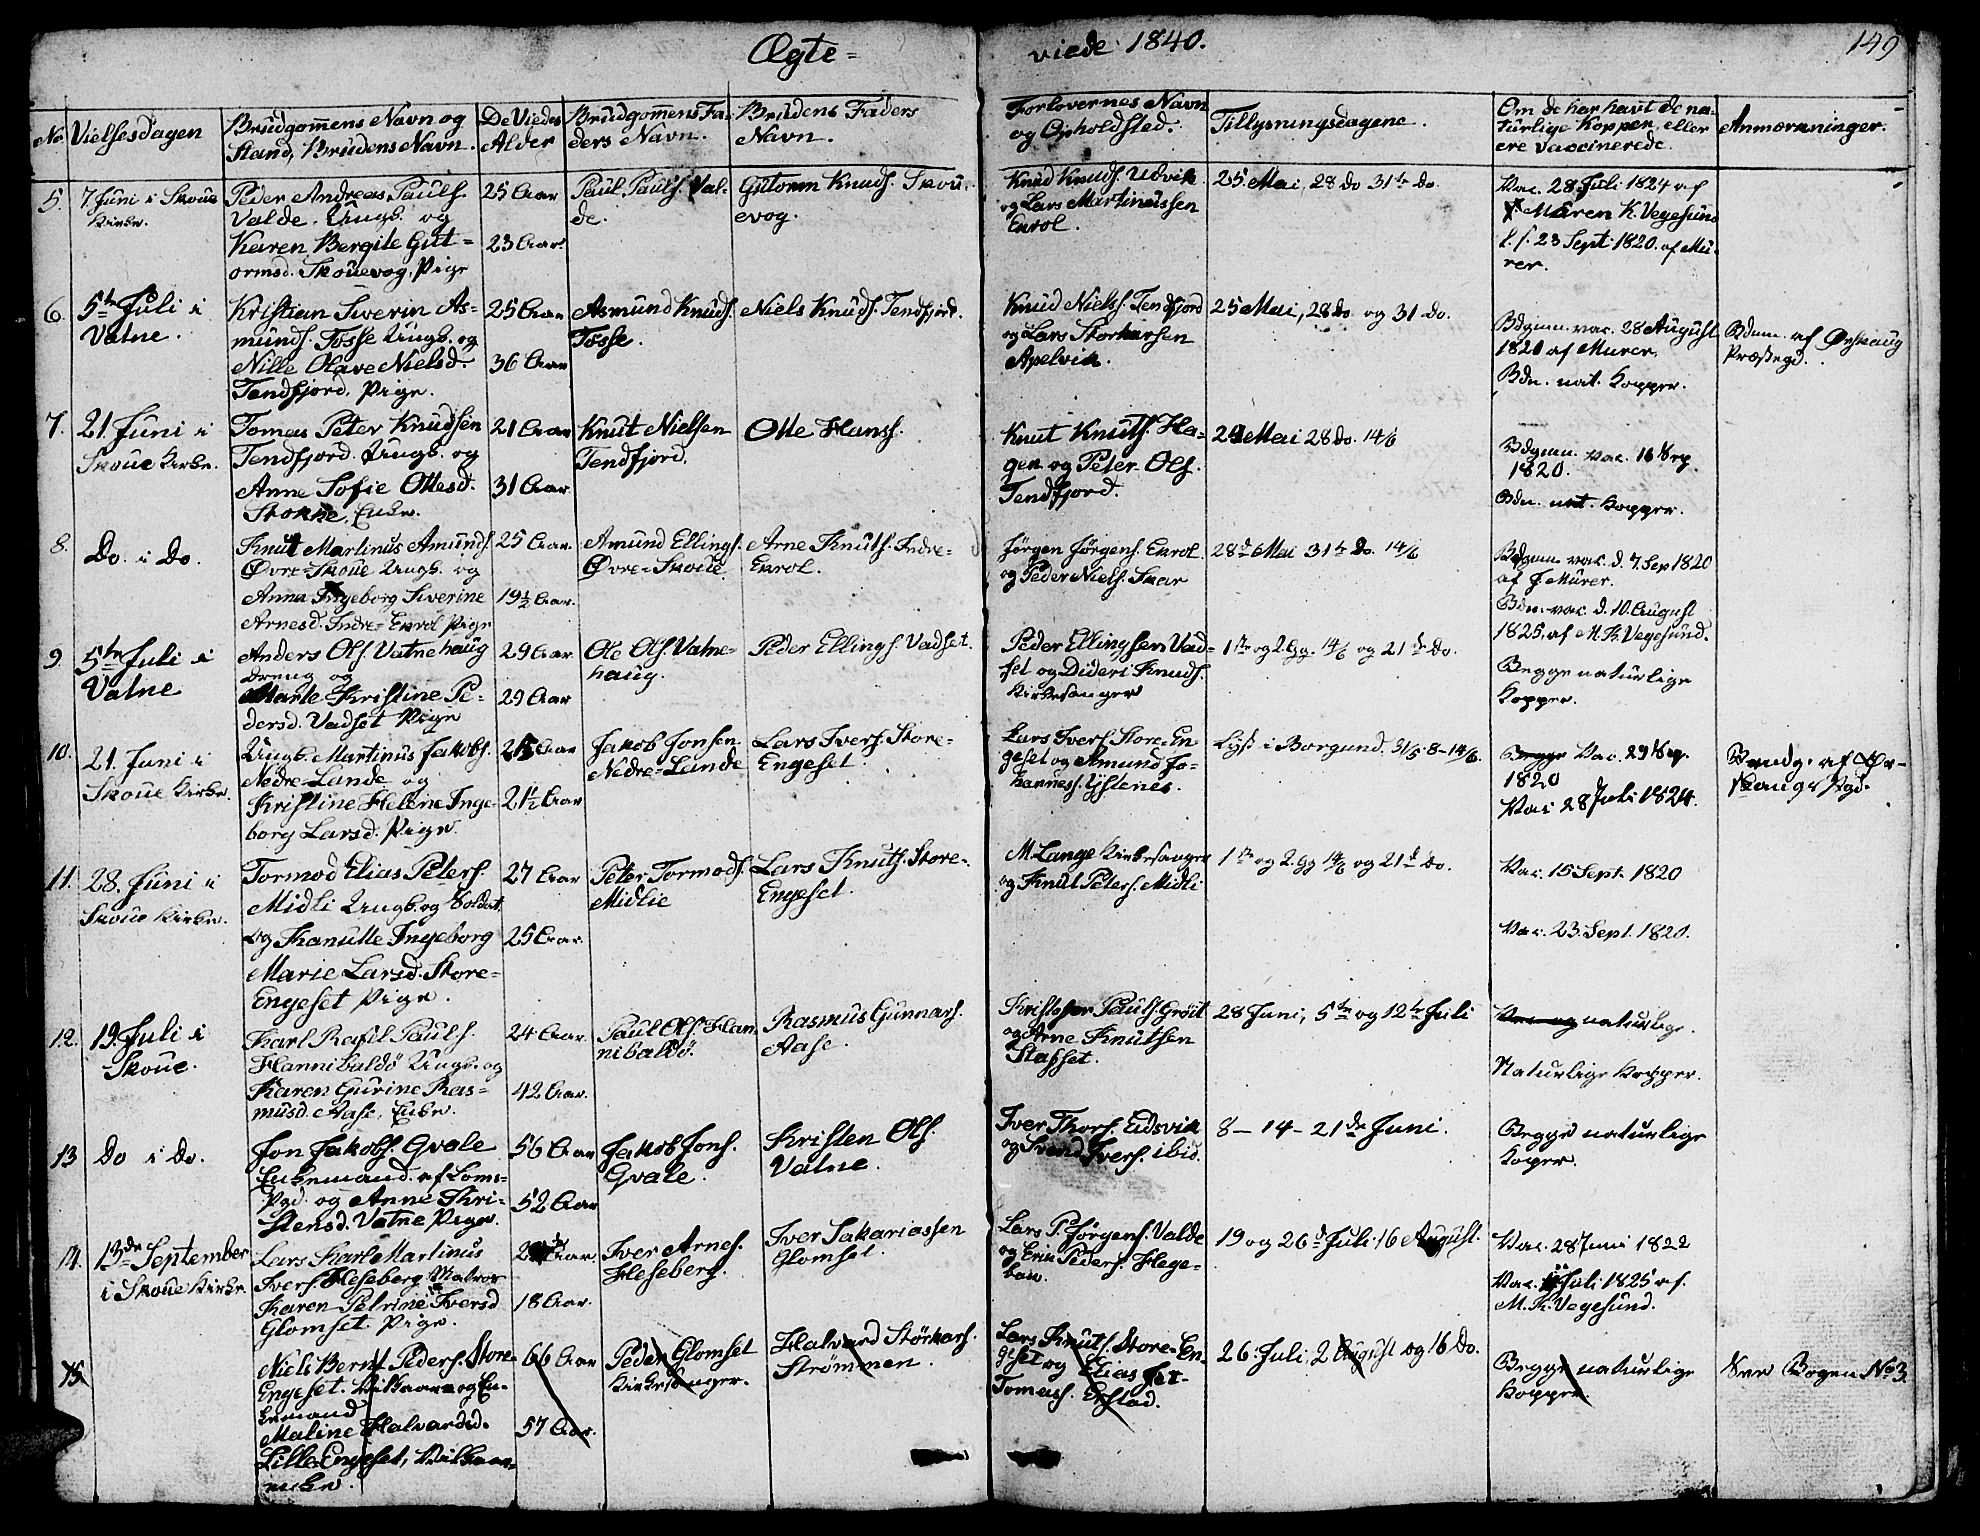 Ægte=
viede 1840.
149
No.
Vielsesdagen
Brudgom̅ens Navn og
Stand, Brudens Navn.
De Viedes
Alder
Brudgom̅ens Fa-
ders Navn.
Brudens Faders
Navn.
Forlovernes Navn
og Opholdsted.
Tillysningsdagene.
Om de har havt de na-
turlige Kopper, eller
ere vaccinerede.
Anmærkninger.
5.
7. Juni i Skoue
Kirke.
Peder Andreas Pauls.
Valde. Ungk. og
Karen Bergite Gut=
ormsd. Skouevog, Pige
25 Aar
23 Aar.
Paul Pauls. Val-
de.
Gutorm Knuds. Skou-
evog.
Knud Knuds. Udvik
og Lars Martinussen
Ekrol.
25. Mai, 28 do 31te do.
Vac. 28 Juli 1824 af
Maren K. Vegesund
23 Sept: 1820. af Mu-
rer.
6.
5te Juli i
Vatne.
Kristian Siverin As-
munds. Fosse Ungk. og
Nille Olave Nielsd.
Tendfjord, Pige.
25 Aar
36 Aar
Asmund Knuds.
Fosse.
Niels Knuds. Tendfjord.
Knud Niels. Tendfjord
og Lars Storkarsen
Apelvik.
25 Mai, 28 do. og 31 do.
Bdgmn. vac. 28 August
1820 af Murer.
Bdn. nat. Kopper.
Bdnm. af Ørskaug
Præstegd.
7.
21. Juni i
Skoue Kirke.
Tomas Peter Knudsen
Tendfjord. Ungk. og
Anne Sofie Ottesd.
Stokke, Enke.
21 Aar
31 Aar
Knut Nielsen
Tendfjord.
Otte Hans.
Knut Knuts. Ha-
gen og Peter Ols.
Tendfjord.
24 Mai 28 do. 14/6
Bdgmn. vac. 16 Sep.
1820.
Bdn. nat. Kopper.
8.
Do. i Do.
Knut Martinus Amunds.
Øvre=Skoue Ungk. og
Anna Ingeborg Siverine
Arnesd. Indre=Ekrol Pige
25 Aar.
19½ Aar.
Amund Ellings.
Øvre=Skoue.
Arne Knuts. Indre=
Ekrol.
Jørgen Jørgens. Ekrol
og Peder Niels. Skar
28de Mai 31te do. 14/6
Bdgmn. vac. d. 7. Sep 1820
af J. Murer.
Bdn. vac. d. 10. August
1825. af M. K. Vegesund.
9.
5te Juli i
Vatne
Anders Ols. Vatnehaug
Dreng og
Marte Kristine Pe-
dersd. Vadset Pige
29 Aar
29 Aar
Ole Ols. Vatne-
haug.
Peder Ellings. Vadset.
Peder Ellingsen Vad-
set og Diderk Knuds.
Kirkesanger
1te og 2. Gg. 14/6 og 21de do.
Begge naturlige
Kopper.
10.
21. Juni i
Skoue Kirke.
Ungk. Martinus Jakobs.
Nedre-Lande og
Kristine Helene Inge-
borg Larsd. Pige
25 Aar
21½ Aar.
Jakob Jonsen
Nedre-Lande
Lars Ivers. Store-
Engeset.
Lars Ivers. Store-En-
geset og Amund Jo-
hannes. Ystenes.
Lyst i Borgund. 31/5 8 - 14/6.
Begge Vac. 29 Sep.
1820
Vac 28 Juli 1824.
Brudg. af Ør-
skougs Pgd.
11.
28. Juni i
Skoue Kirke.
Tormod Elias Peters.
Midli Ungk. og Soldat
og Hanutte Ingeborg
Marie Larsd. Store=
Engeset Pige.
27 Aar
25 Aar.
Peter Tormods.
Midlie
Lars Knuts. Store-
Engeset.
M. Lange Kirkesanger
og Knut Peters. Midli
1te og 2. Gg 14/6 og 21de do.
Vac. 15 Sept. 1820
Vac. 23. Sept. 1820.
12.
19. Juli i
Skoue.
Karl Pauls.
Hannibaldø Ungk. og
Karen Gurine Ras-
musd. Aase, Enke.
24 Aar.
42 Aar.
Paul Ols. Han
nibaldø.
Rasmus Gunnars.
Aase.
Kristofer Pauls. Grøit
og Arne Knutsen
Slasset.
28 Juni, 5te og 12te Juli
Vac. og naturlige.
Naturlige Kopper.
13
Do i Do.
Jon Jakobs. Qvale
Enkemand. af Loms=
Pgd. og Anne Kri-
stensd. Vatne Pige.
56 Aar
52 Aar
Jakob Jons.
Qvale.
Kristen Ols.
Vatne.
Iver Thors. Eidsvik
og Svend Ivers. ibid.
8 - 14 - 21de Juni.
Begge naturlige
Koper.
14.
13de September
i Skoue Kirke
Lars Karl Martinus
Ivers. Heseberg Matros
Karen Petrine Iversd
Glomset Pige.
Aar.
18 Aar.
Iver Arnes.
Heseberg.
Iver Sakariassen
Glomset.
Lars P. Jørgens. Valde
og Erik Peders. Hege-
bak.
19 og 26de Juli. 16 August.
Vac. 28 Juni 1822
Vac. Juli 1825 af.
M. K. Vegesund.
15.
Niels Bernt Peders. Store-
Engeset. Vilkaars og En-
kemand
Maline Halvardsd.
Lille=Engeset, Vilkaars-
enke.
66 Aar
57 Aar.
Peder Glomset
Kirkesanger.
Halvard Störkars.
Strømmen.
Lars Knuts. Store-En-
geset og Elias Jet-
Tomass. Ekstad.
26. Juli, 2 August og 16 Do.
Begge naturlige
Kopper.
See Bogen No 3